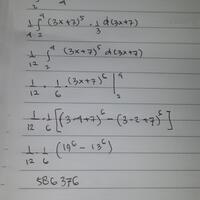 1/4 ∫₂⁴ (3x+7)⁵ · 1/3 d(3x+7)
1/12 ∫₂⁴ (3x+7)⁵ d(3x+7)
1/12 · 1/6 · (3x+7)⁶ |₂⁴
1/12 · 1/6 [(3·4+7)⁶ − (3·2+7)⁶]
1/12 · 1/6 (19⁶ − 13⁶)
586376